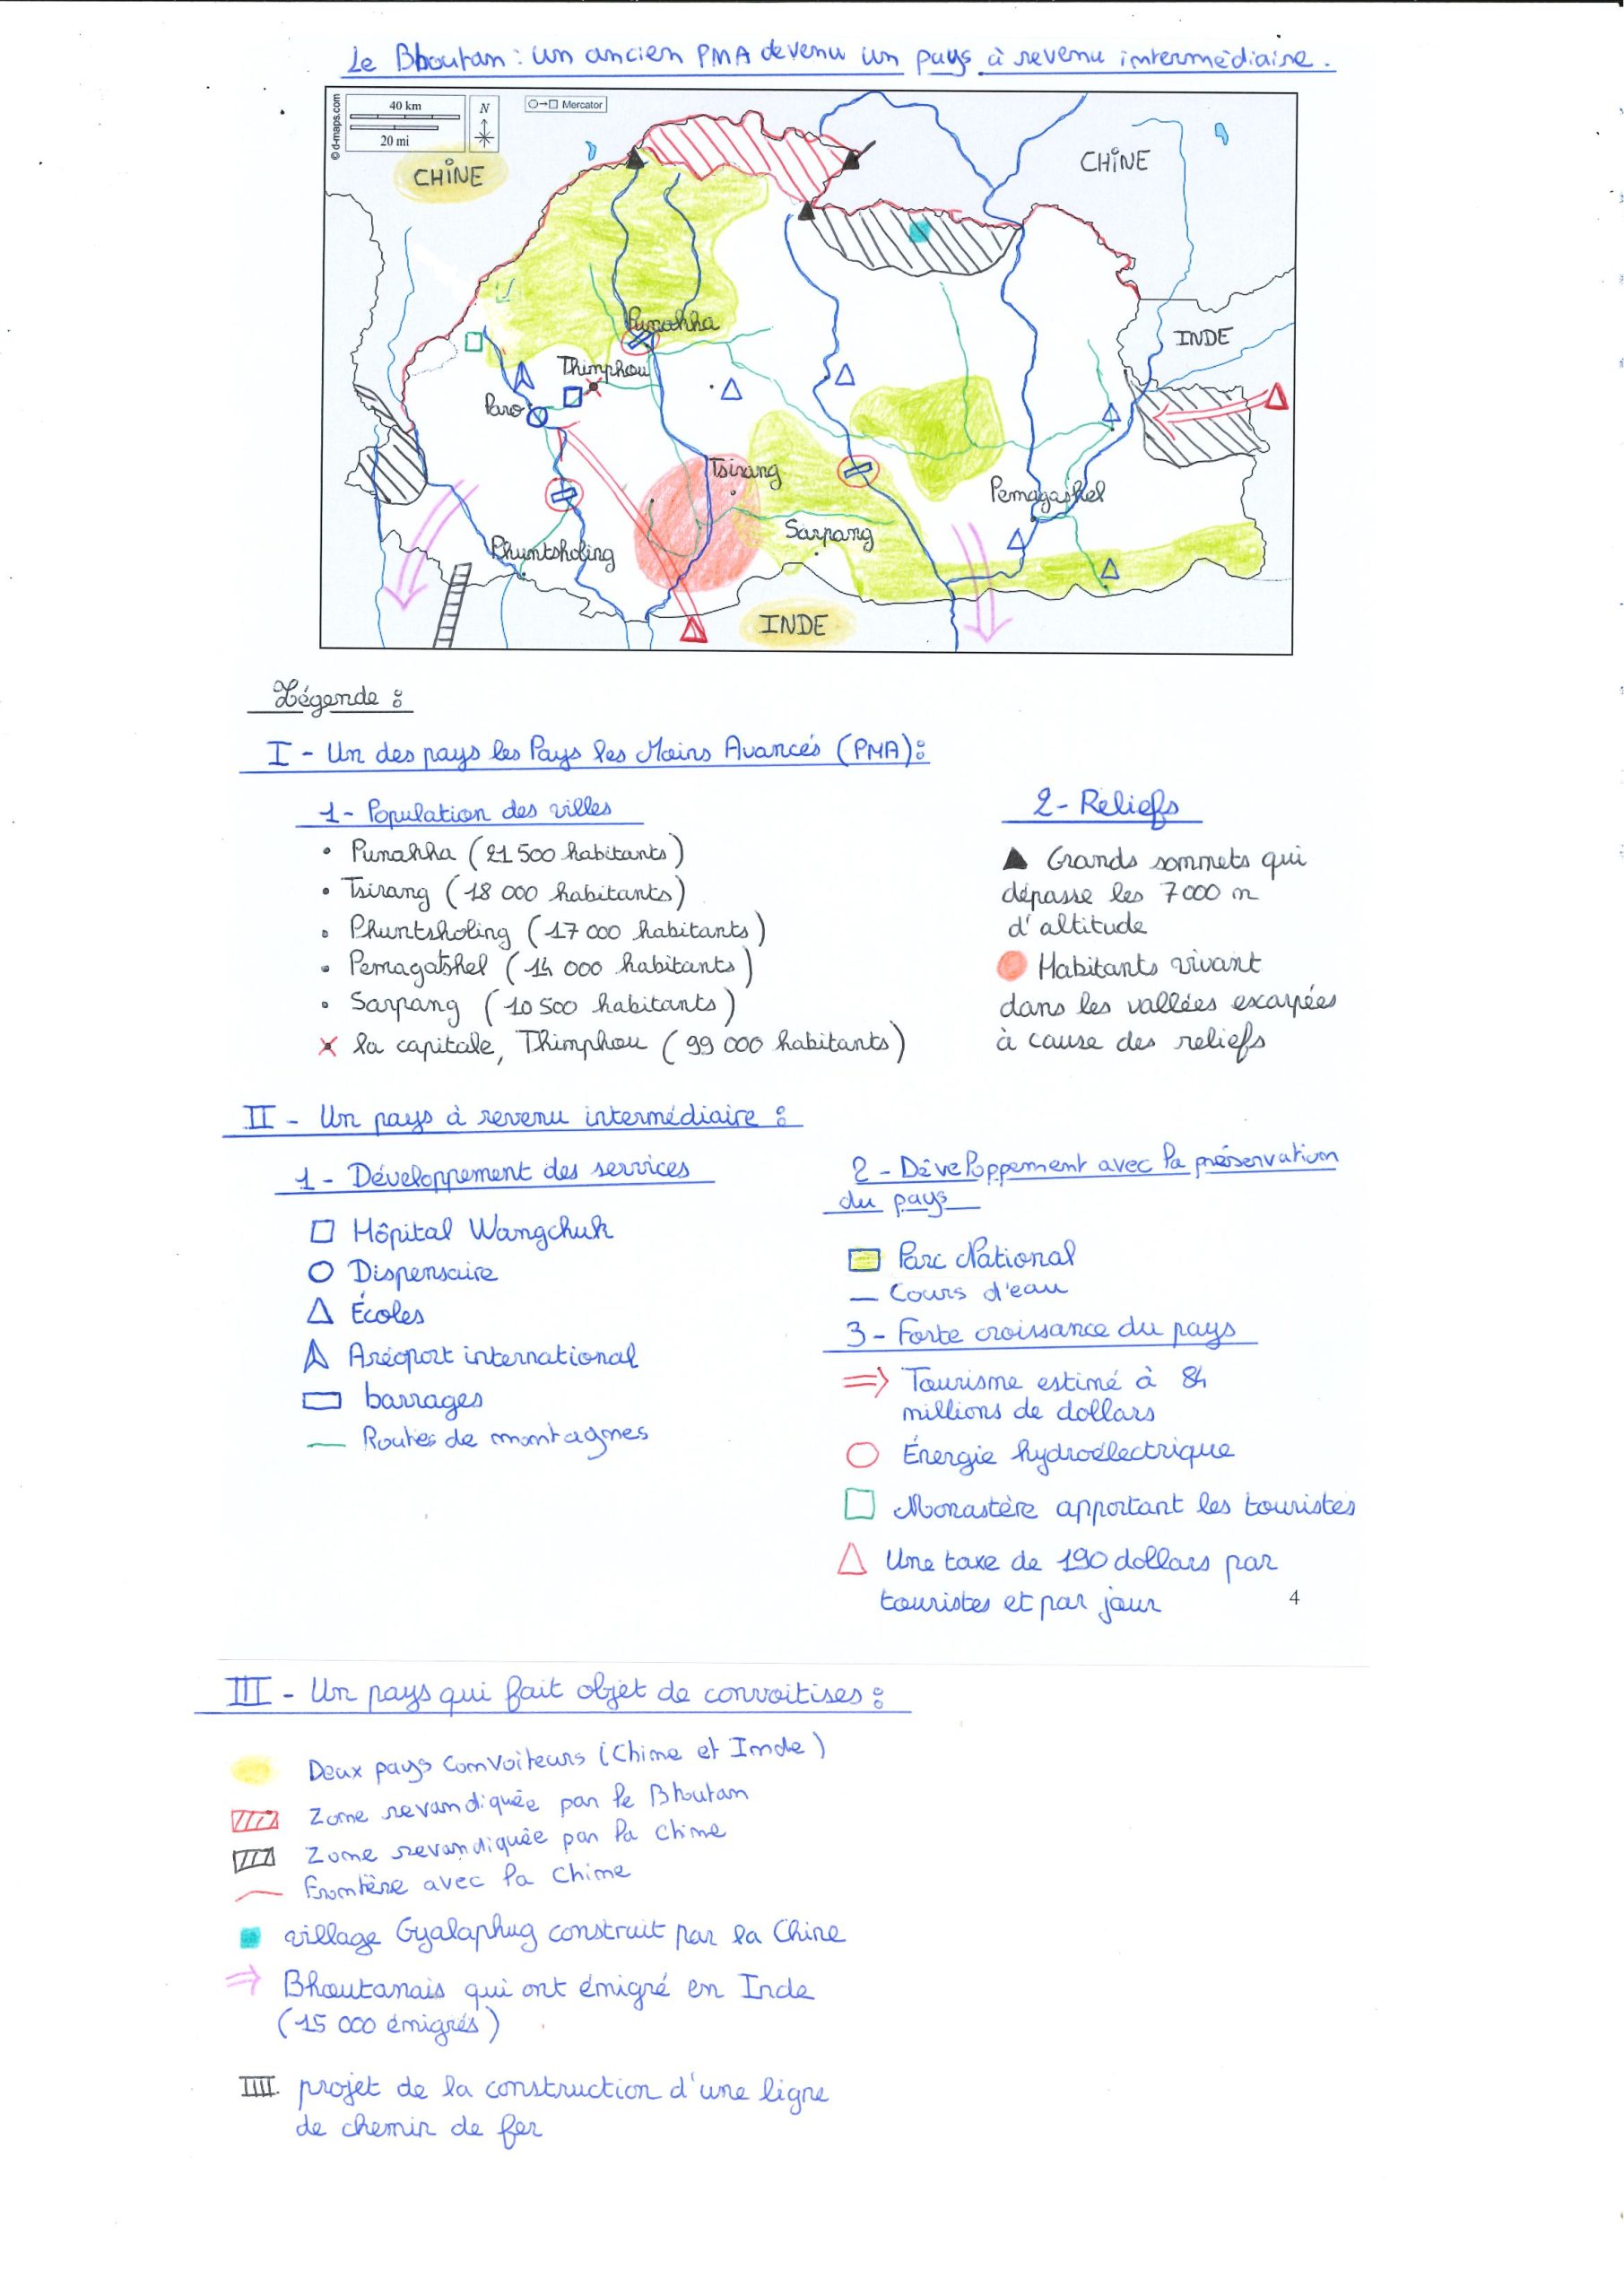 Le Bhoutan : un ancien PMA devenu un pays à revenu intermédiaire.
© d-maps.com
40 km
20 mi
N
Mercator
CHINE
CHINE
INDE
Punakha
Thimphou
Paro
Tsirang
Pemagatshel
Sarpang
Phuntsholing
INDE
Légende :
I - Un des pays les Pays les Moins Avancés (PMA) :
1- Population des villes
• Punakha (21 500 habitants)
• Tsirang (18 000 habitants)
• Phuntsholing (17 000 habitants)
• Pemagatshel (14 000 habitants)
• Sarpang (10 500 habitants)
la capitale, Thimphou (99 000 habitants)
2- Reliefs
Grands sommets qui
dépasse les 7000 m
d'altitude
Habitants vivant
dans les vallées escarpées
à cause des reliefs
II - Un pays à revenu intermédiaire :
1- Développement des services
Hôpital Wangchuk
Dispensaire
Écoles
Aréoport international
barrages
Routes de montagnes
2 - Développement avec la préservation
du pays
Parc National
Cours d'eau
3- Forte croissance du pays
Tourisme estimé à 84
millions de dollars
Énergie hydroélectrique
Monastère apportant les touristes
Une taxe de 190 dollars par
touristes et par jour
4
III - Un pays qui fait objet de convoitises :
Deux pays convoiteurs (Chine et Inde)
Zone revandiquée par le Bhoutan
Zone revandiquée par la Chine
Frontère avec la Chine
village Gyalaphug construit par la Chine
Bhoutanais qui ont émigré en Inde
(15 000 émigrés)
projet de la construction d'une ligne
de chemin de fer